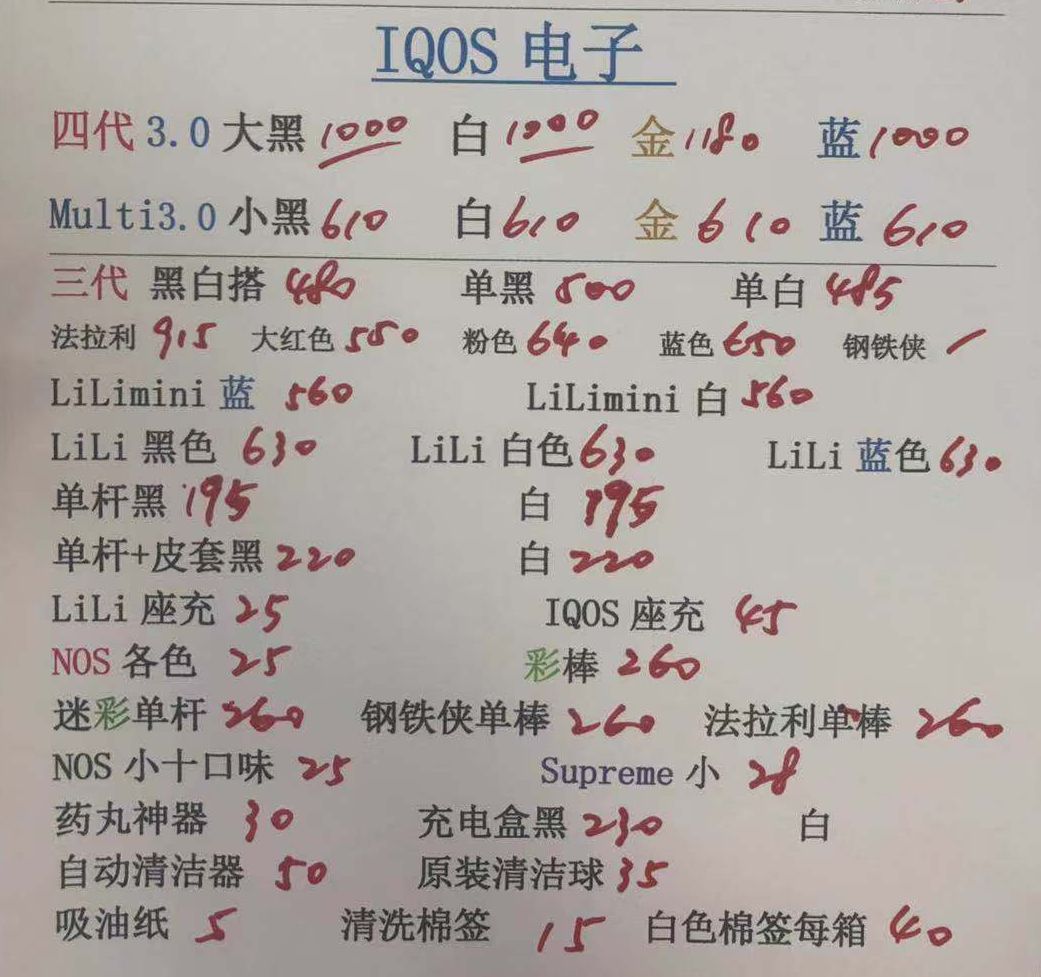 IQOS 电子
四代 3.0 大黑 1000 白 1000 金 1180 蓝 1000
Multi3.0 小黑 610 白 610 金 610 蓝 610
三代 黑白搭 480 单黑 500 单白 485
法拉利 915 大红色 550 粉色 640 蓝色 650 钢铁侠 /
LiLimini 蓝 560 LiLimini 白 560
LiLi 黑色 630 LiLi 白色 630 LiLi 蓝色 630
单杆黑 195 白 195
单杆+皮套黑 220 白 220
LiLi 座充 25 IQOS 座充 45
NOS 各色 25 彩棒 260
迷彩单杆 260 钢铁侠单棒 260 法拉利单棒 260
NOS 小十口味 25 Supreme 小 28
药丸神器 30 充电盒黑 230 白
自动清洁器 50 原装清洁球 35
吸油纸 5 清洗棉签 15 白色棉签每箱 40